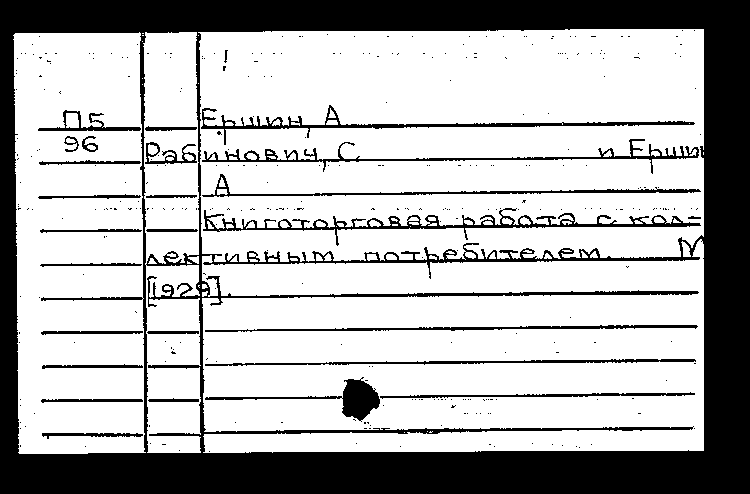 !
П5 Ершин, А
96 Рабинович, С. и Ершин
А
Книготорговая работа с кол=
лективным потребителем. М
[1929].